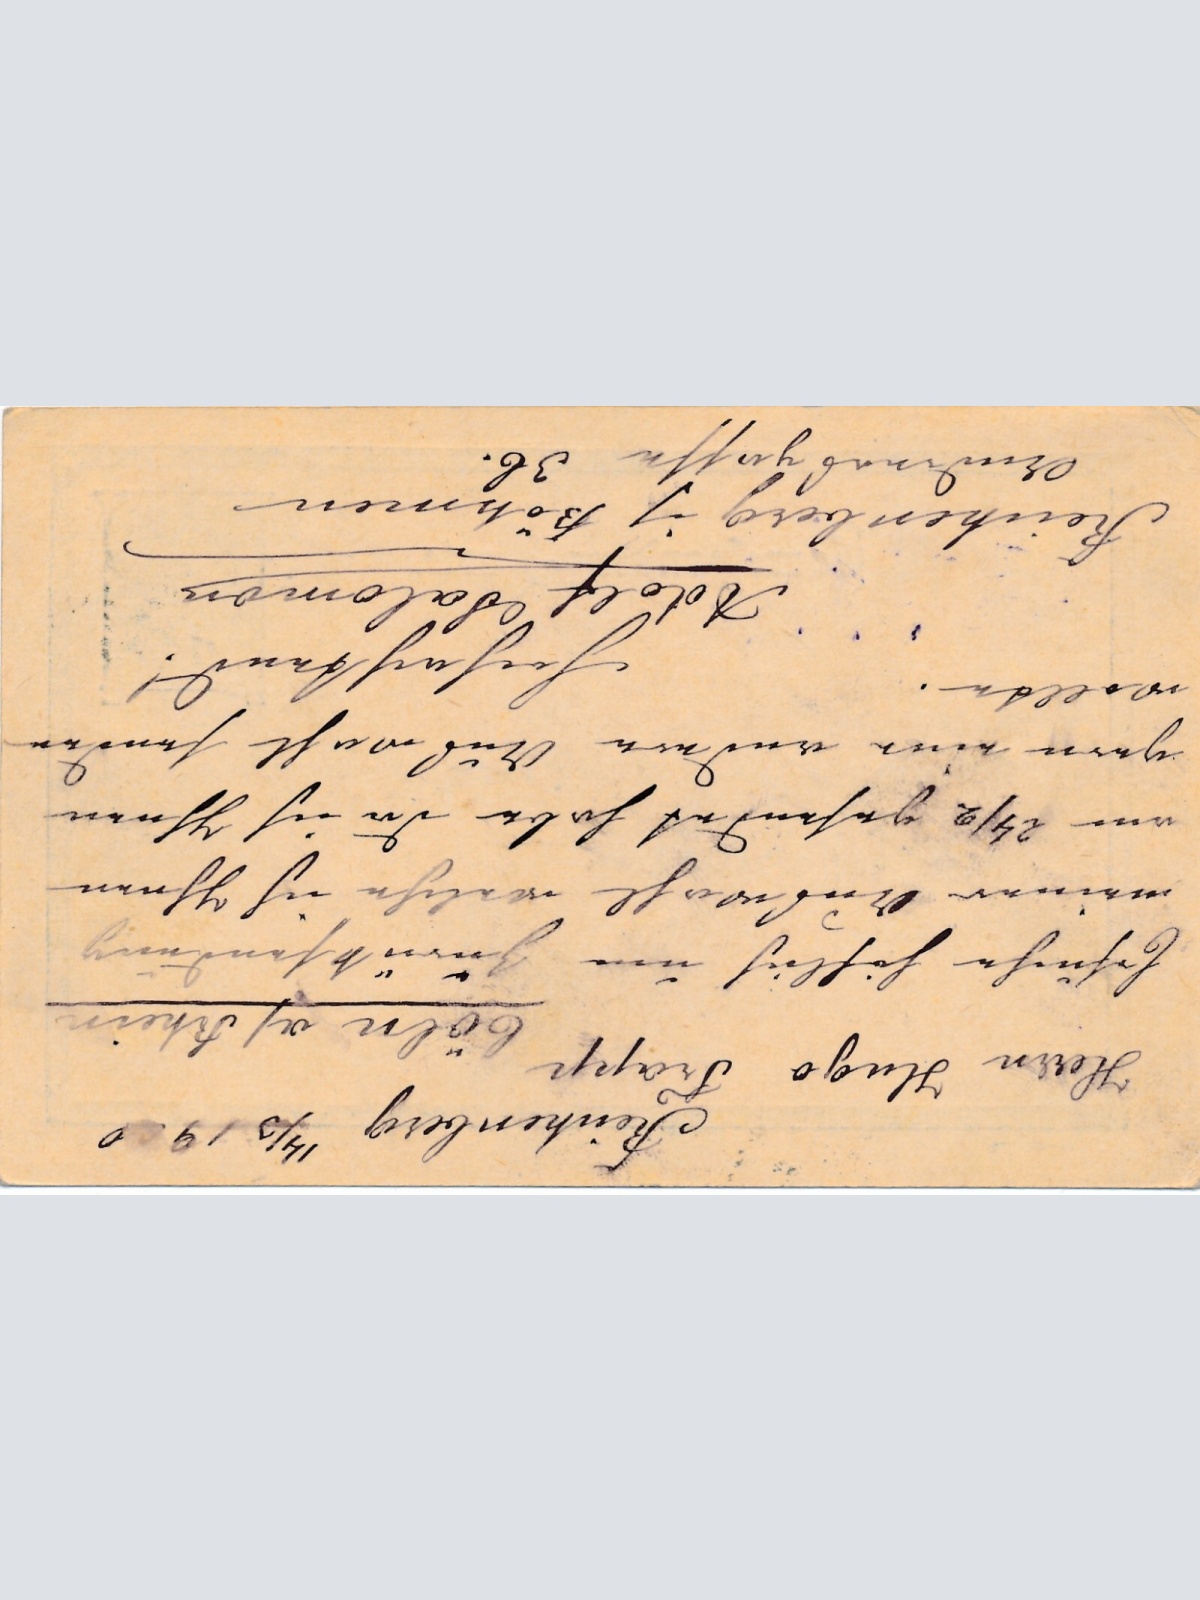 Reichenberg 14/3 1900
Herrn Hugo Trapp
Cöln a/ Rhein
Ersuche höflich um Zurücksendung
meiner Auswahl welche ich Ihnen
am 24/2 gesendet habe da ich Ihnen
gern eine andere Auswahl senden
wollte.
Hochachtend!
Adolf Salomon
Reichenberg i/ Böhmen
gasse 36.